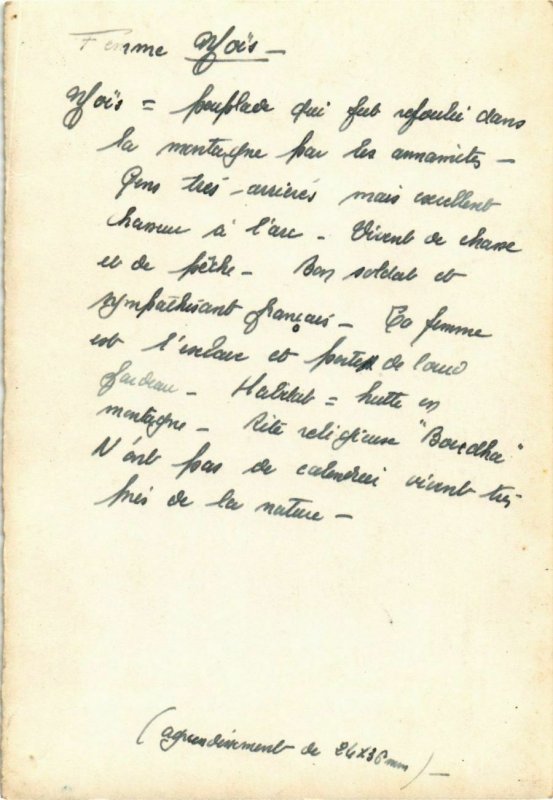 Femme Moïs -
Moïs = peuplade qui fut refoulée dans
la montagne par les annamites -
Gens très arriérés mais excellent
chasseur à l'arc - Vivent de chasse
et de pêche - Bon soldat et
sympathisant français - La femme
est l'esclave et porte de lourd
fardeau - Habitat = hutte en
montagne - Rite religieuse "Boudha"
N'ont pas de calendrier vivent très
près de la nature -
(agrandissement de 24x36mm) -